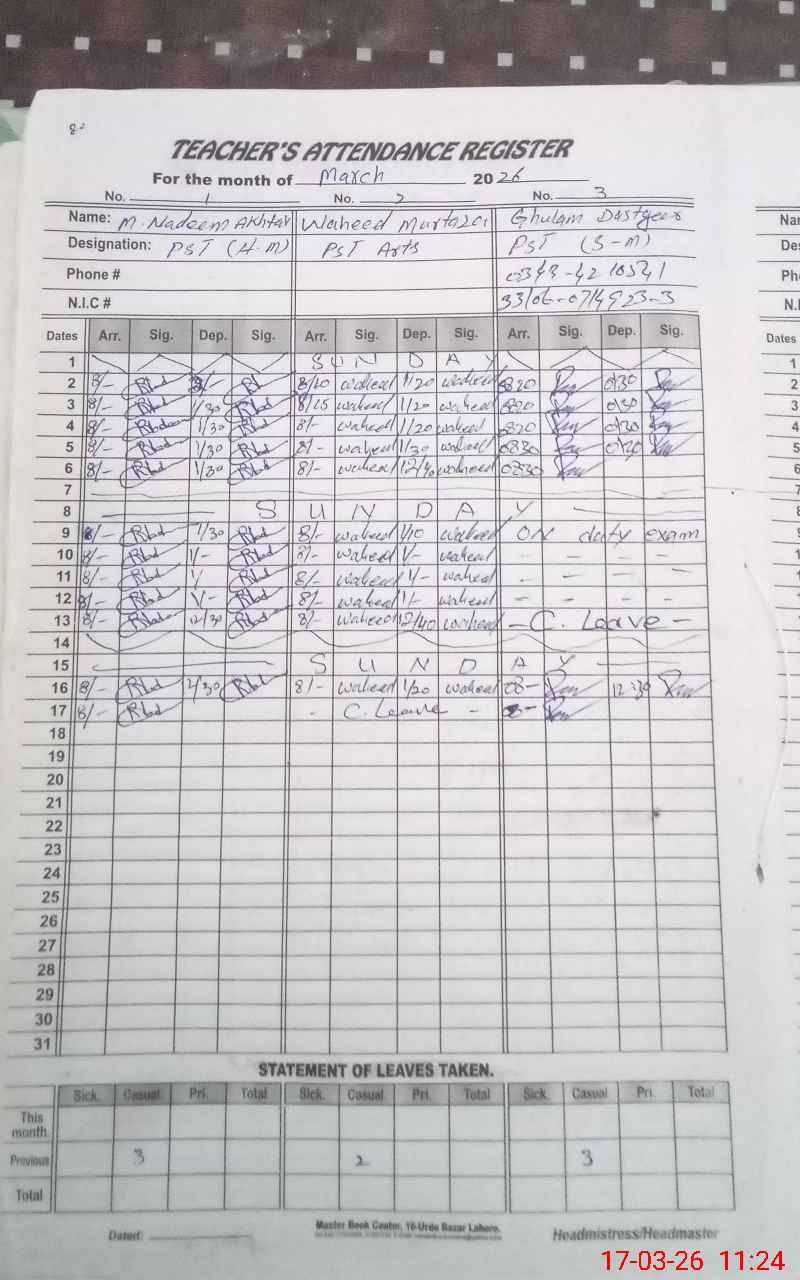 TEACHER'S ATTENDANCE REGISTER
For the month of March 2026
No. 1 No. 2 No. 3
Name: M. Nadeem Akhtar Waheed Murtaza Ghulam Dastgeer
Designation: PST (H.M) PST Arts PST (S-M)
Phone # 0343-4210341
N.I.C #
Dates Arr. Sig. Dep. Sig. Arr. Sig. Dep. Sig. Arr. Sig. Dep. Sig.
1 SUNDAY
2 8/- 8/20 waheed 1/20 waheed 0820 0130
3 8/- 1/30 8/15 waheed 1/20 waheed 0820 0130
4 8/- 1/30 8/- waheed 1/20 waheed 0820 0130
5 8/- 1/30 8/- waheed 1/30 waheed 0830 0130
6 8/- 1/30 8/- waheed 12/40 waheed 0830
7
8 SUNDAY
9 8/- 1/30 8/- waheed 1/10 waheed ON duty exam
10 8/- 1/- 8/- waheed 1/- waheed - - - -
11 8/- 1/ 8/- waheed 1/- waheed - - - -
12 8/- 1/- 8/- waheed 1/- waheed - - - -
13 8/- 12/30 8/- waheed 12/40 waheed - C. Leave -
14
15 SUNDAY
16 8/- 8/- waheed 1/20 waheed 08- 12:30
17 8/- - C. Leave - 8-
18
19
20
21
22
23
24
25
26
27
28
29
30
31
STATEMENT OF LEAVES TAKEN.
Sick. Casual Pri. Total Sick. Casual Pri. Total Sick. Casual Pri. Total
This month
Previous 3 2 3
Total
Dated: Master Book Center, 10-Urdu Bazar Lahore. Headmistress/Headmaster
17-03-26 11:24